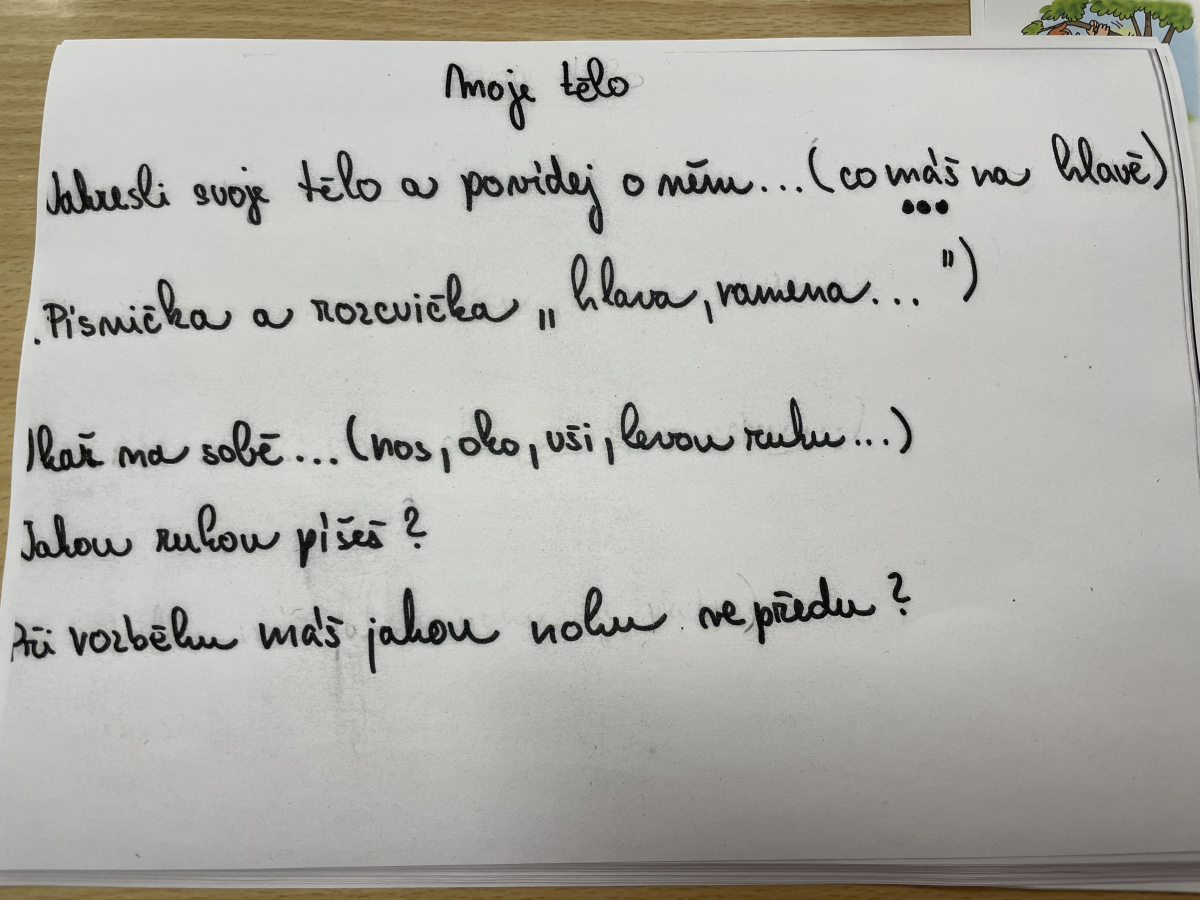 Moje tělo
Nakresli svoje tělo a povídej o něm...(co máš na hlavě)
...
Písnička a rozcvička „hlava, ramena...")
Ukaž na sobě...(nos, oko, uši, levou ruku...)
Jakou rukou píšeš?
Při rozběhu máš jakou nohu ve předu?